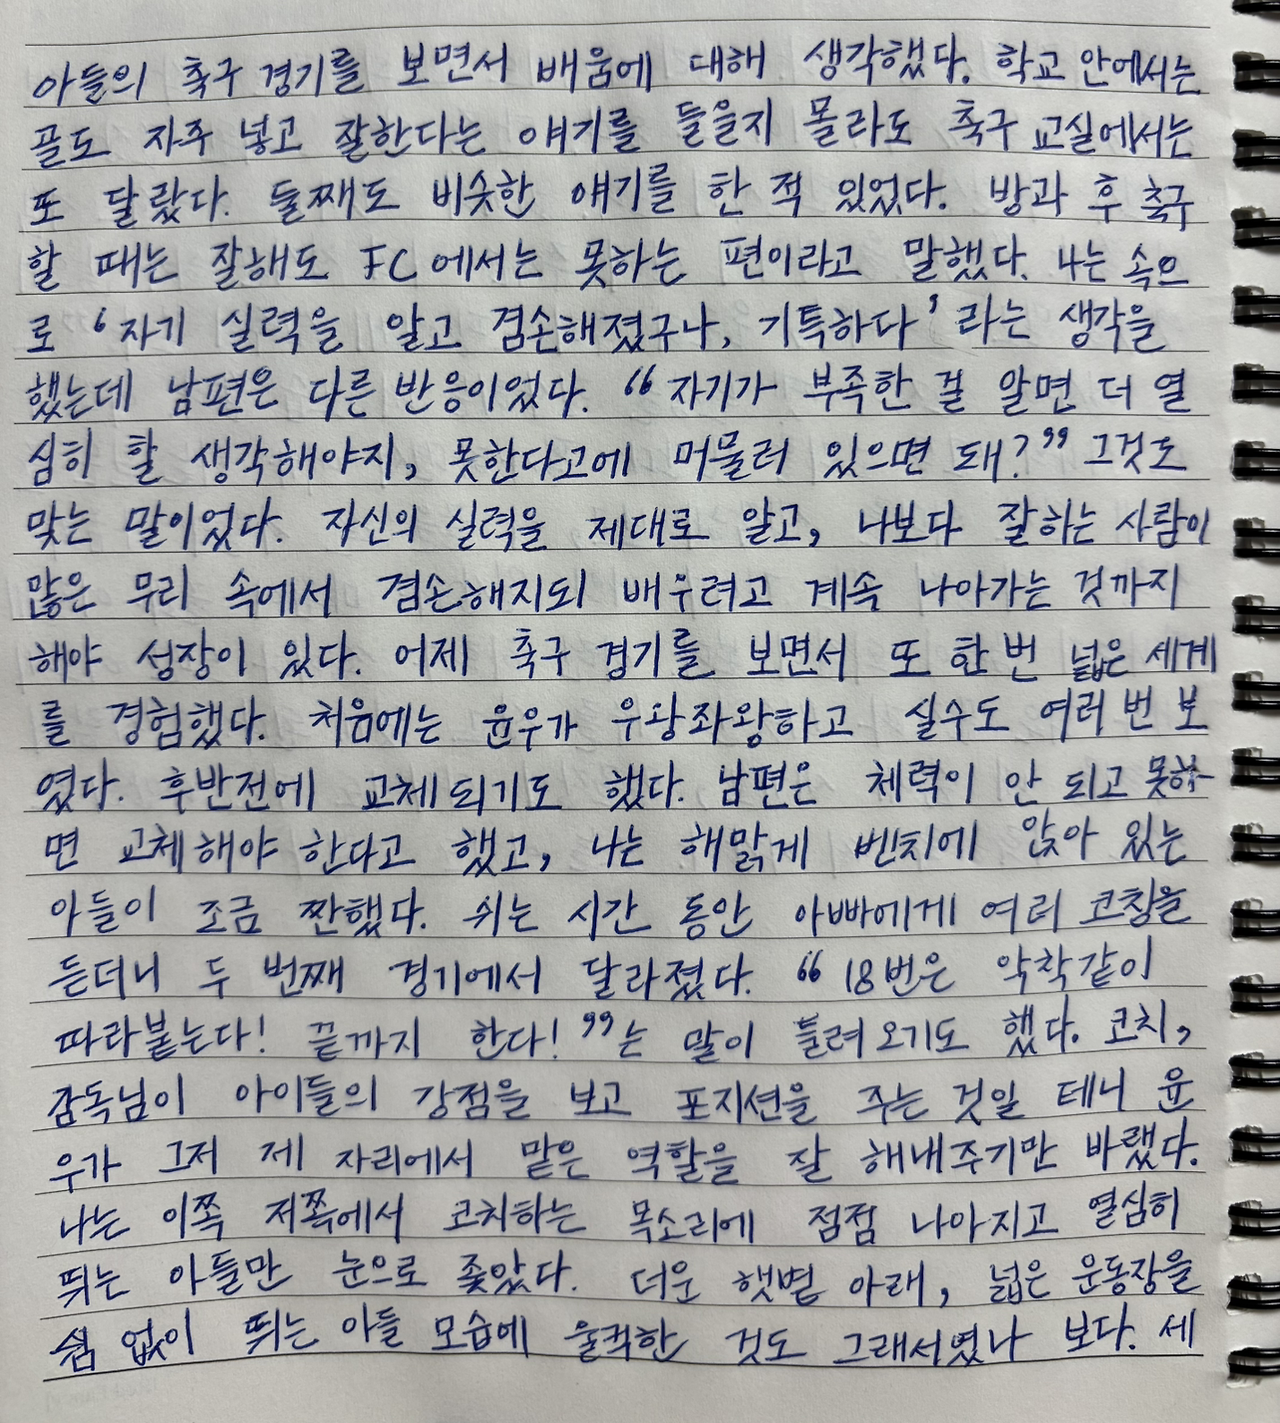 아들의 축구 경기를 보면서 배움에 대해 생각했다. 학교 안에서는
골도 자주 넣고 잘한다는 얘기를 들을지 몰라도 축구 교실에서는
또 달랐다. 둘째도 비슷한 얘기를 한 적 있었다. 방과 후 축구
할 때는 잘해도 FC에서는 못하는 편이라고 말했다. 나는 속으
로 ‘자기 실력을 알고 겸손해졌구나, 기특하다’라는 생각을
했는데 남편은 다른 반응이었다. “자기가 부족한 걸 알면 더 열
심히 할 생각해야지, 못한다고에 머물러 있으면 돼?” 그것도
맞는 말이었다. 자신의 실력을 제대로 알고, 나보다 잘하는 사람이
많은 무리 속에서 겸손해지되 배우려고 계속 나아가는 것까지
해야 성장이 있다. 어제 축구 경기를 보면서 또 한 번 넓은 세계
를 경험했다. 처음에는 윤우가 우왕좌왕하고 실수도 여러 번 보
였다. 후반전에 교체되기도 했다. 남편은 체력이 안 되고 못하
면 교체해야 한다고 했고, 나는 해맑게 벤치에 앉아 있는
아들이 조금 짠했다. 쉬는 시간 동안 아빠에게 여러 코칭을
듣더니 두 번째 경기에서 달라졌다. “18번은 악착같이
따라붙는다! 끝까지 한다!”는 말이 들려오기도 했다. 코치,
감독님이 아이들의 강점을 보고 포지션을 주는 것일 테니 윤
우가 그저 제 자리에서 맡은 역할을 잘 해내주기만 바랬다.
나는 이쪽 저쪽에서 코치하는 목소리에 점점 나아지고 열심히
뛰는 아들만 눈으로 좇았다. 더운 햇볕 아래, 넓은 운동장을
쉼 없이 뛰는 아들 모습에 울컥한 것도 그래서였나 보다. 세